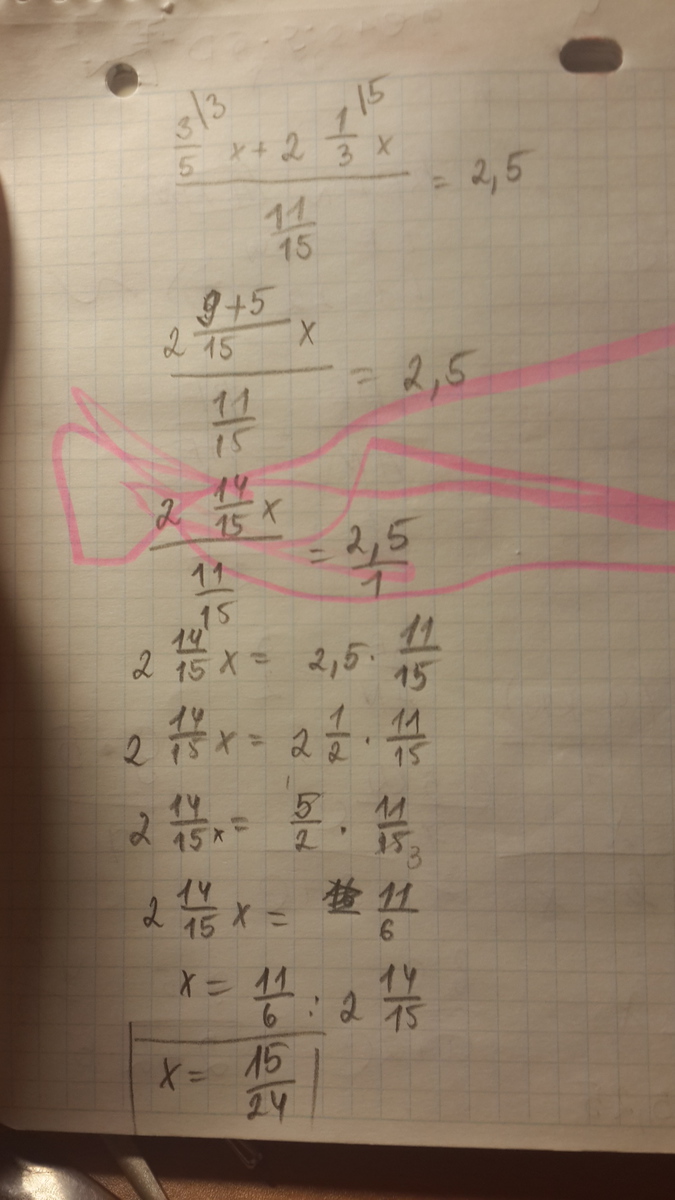 3/5\3 x + 2 1/3|5 x / 11/15 = 2,5
2 9+5/15 x / 11/15 = 2,5
2 14/15 x / 11/15 = 2,5/1
2 14/15 x = 2,5 · 11/15
2 14/15 x = 2 1/2 · 11/15
2 14/15 x = 5/2 · 11/15 1 3
2 14/15 x = 11/6
x = 11/6 : 2 14/15
x = 15/24